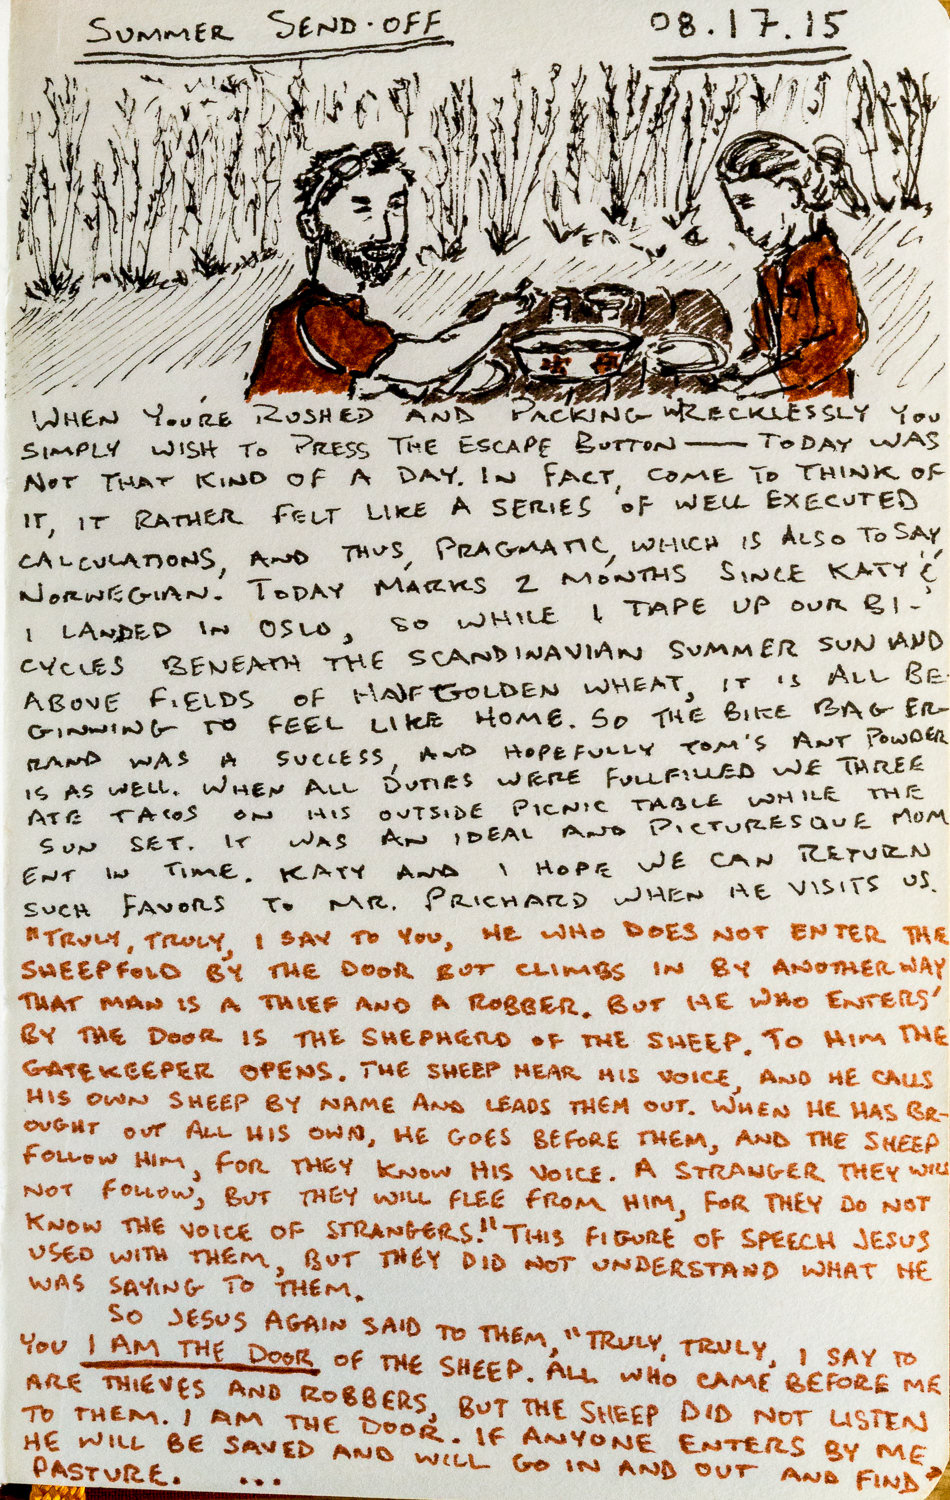 SUMMER SEND-OFF 08.17.15
WHEN YOU'RE RUSHED AND PACKING WRECKLESSLY YOU
SIMPLY WISH TO PRESS THE ESCAPE BUTTON — TODAY WAS
NOT THAT KIND OF A DAY. IN FACT, COME TO THINK OF
IT, IT RATHER FELT LIKE A SERIES OF WELL EXECUTED
CALCULATIONS, AND THUS, PRAGMATIC, WHICH IS ALSO TO SAY,
NORWEGIAN. TODAY MARKS 2 MONTHS SINCE KATY &
I LANDED IN OSLO, SO WHILE I TAPE UP OUR BI-
CYCLES BENEATH THE SCANDINAVIAN SUMMER SUN AND
ABOVE FIELDS OF HALF GOLDEN WHEAT, IT IS ALL BE-
GINNING TO FEEL LIKE HOME. SO THE BIKE BAG ER-
RAND WAS A SUCCESS, AND HOPEFULLY TOM'S ANT POWDER
IS AS WELL. WHEN ALL DUTIES WERE FULLFILLED WE THREE
ATE TACOS ON HIS OUTSIDE PICNIC TABLE WHILE THE
SUN SET. IT WAS AN IDEAL AND PICTURESQUE MOM
ENT IN TIME. KATY AND I HOPE WE CAN RETURN
SUCH FAVORS TO MR. PRICHARD WHEN HE VISITS US.
"TRULY, TRULY, I SAY TO YOU, HE WHO DOES NOT ENTER THE
SHEEPFOLD BY THE DOOR BUT CLIMBS IN BY ANOTHER WAY
THAT MAN IS A THIEF AND A ROBBER. BUT HE WHO ENTERS
BY THE DOOR IS THE SHEPHERD OF THE SHEEP. TO HIM THE
GATEKEEPER OPENS. THE SHEEP HEAR HIS VOICE, AND HE CALLS
HIS OWN SHEEP BY NAME AND LEADS THEM OUT. WHEN HE HAS BR-
OUGHT OUT ALL HIS OWN, HE GOES BEFORE THEM, AND THE SHEEP
FOLLOW HIM, FOR THEY KNOW HIS VOICE. A STRANGER THEY WILL
NOT FOLLOW, BUT THEY WILL FLEE FROM HIM, FOR THEY DO NOT
KNOW THE VOICE OF STRANGERS." THIS FIGURE OF SPEECH JESUS
USED WITH THEM, BUT THEY DID NOT UNDERSTAND WHAT HE
WAS SAYING TO THEM.
SO JESUS AGAIN SAID TO THEM, "TRULY, TRULY, I SAY TO
YOU I AM THE DOOR OF THE SHEEP. ALL WHO CAME BEFORE ME
ARE THIEVES AND ROBBERS, BUT THE SHEEP DID NOT LISTEN
TO THEM. I AM THE DOOR. IF ANYONE ENTERS BY ME,
HE WILL BE SAVED AND WILL GO IN AND OUT AND FIND
PASTURE." ...